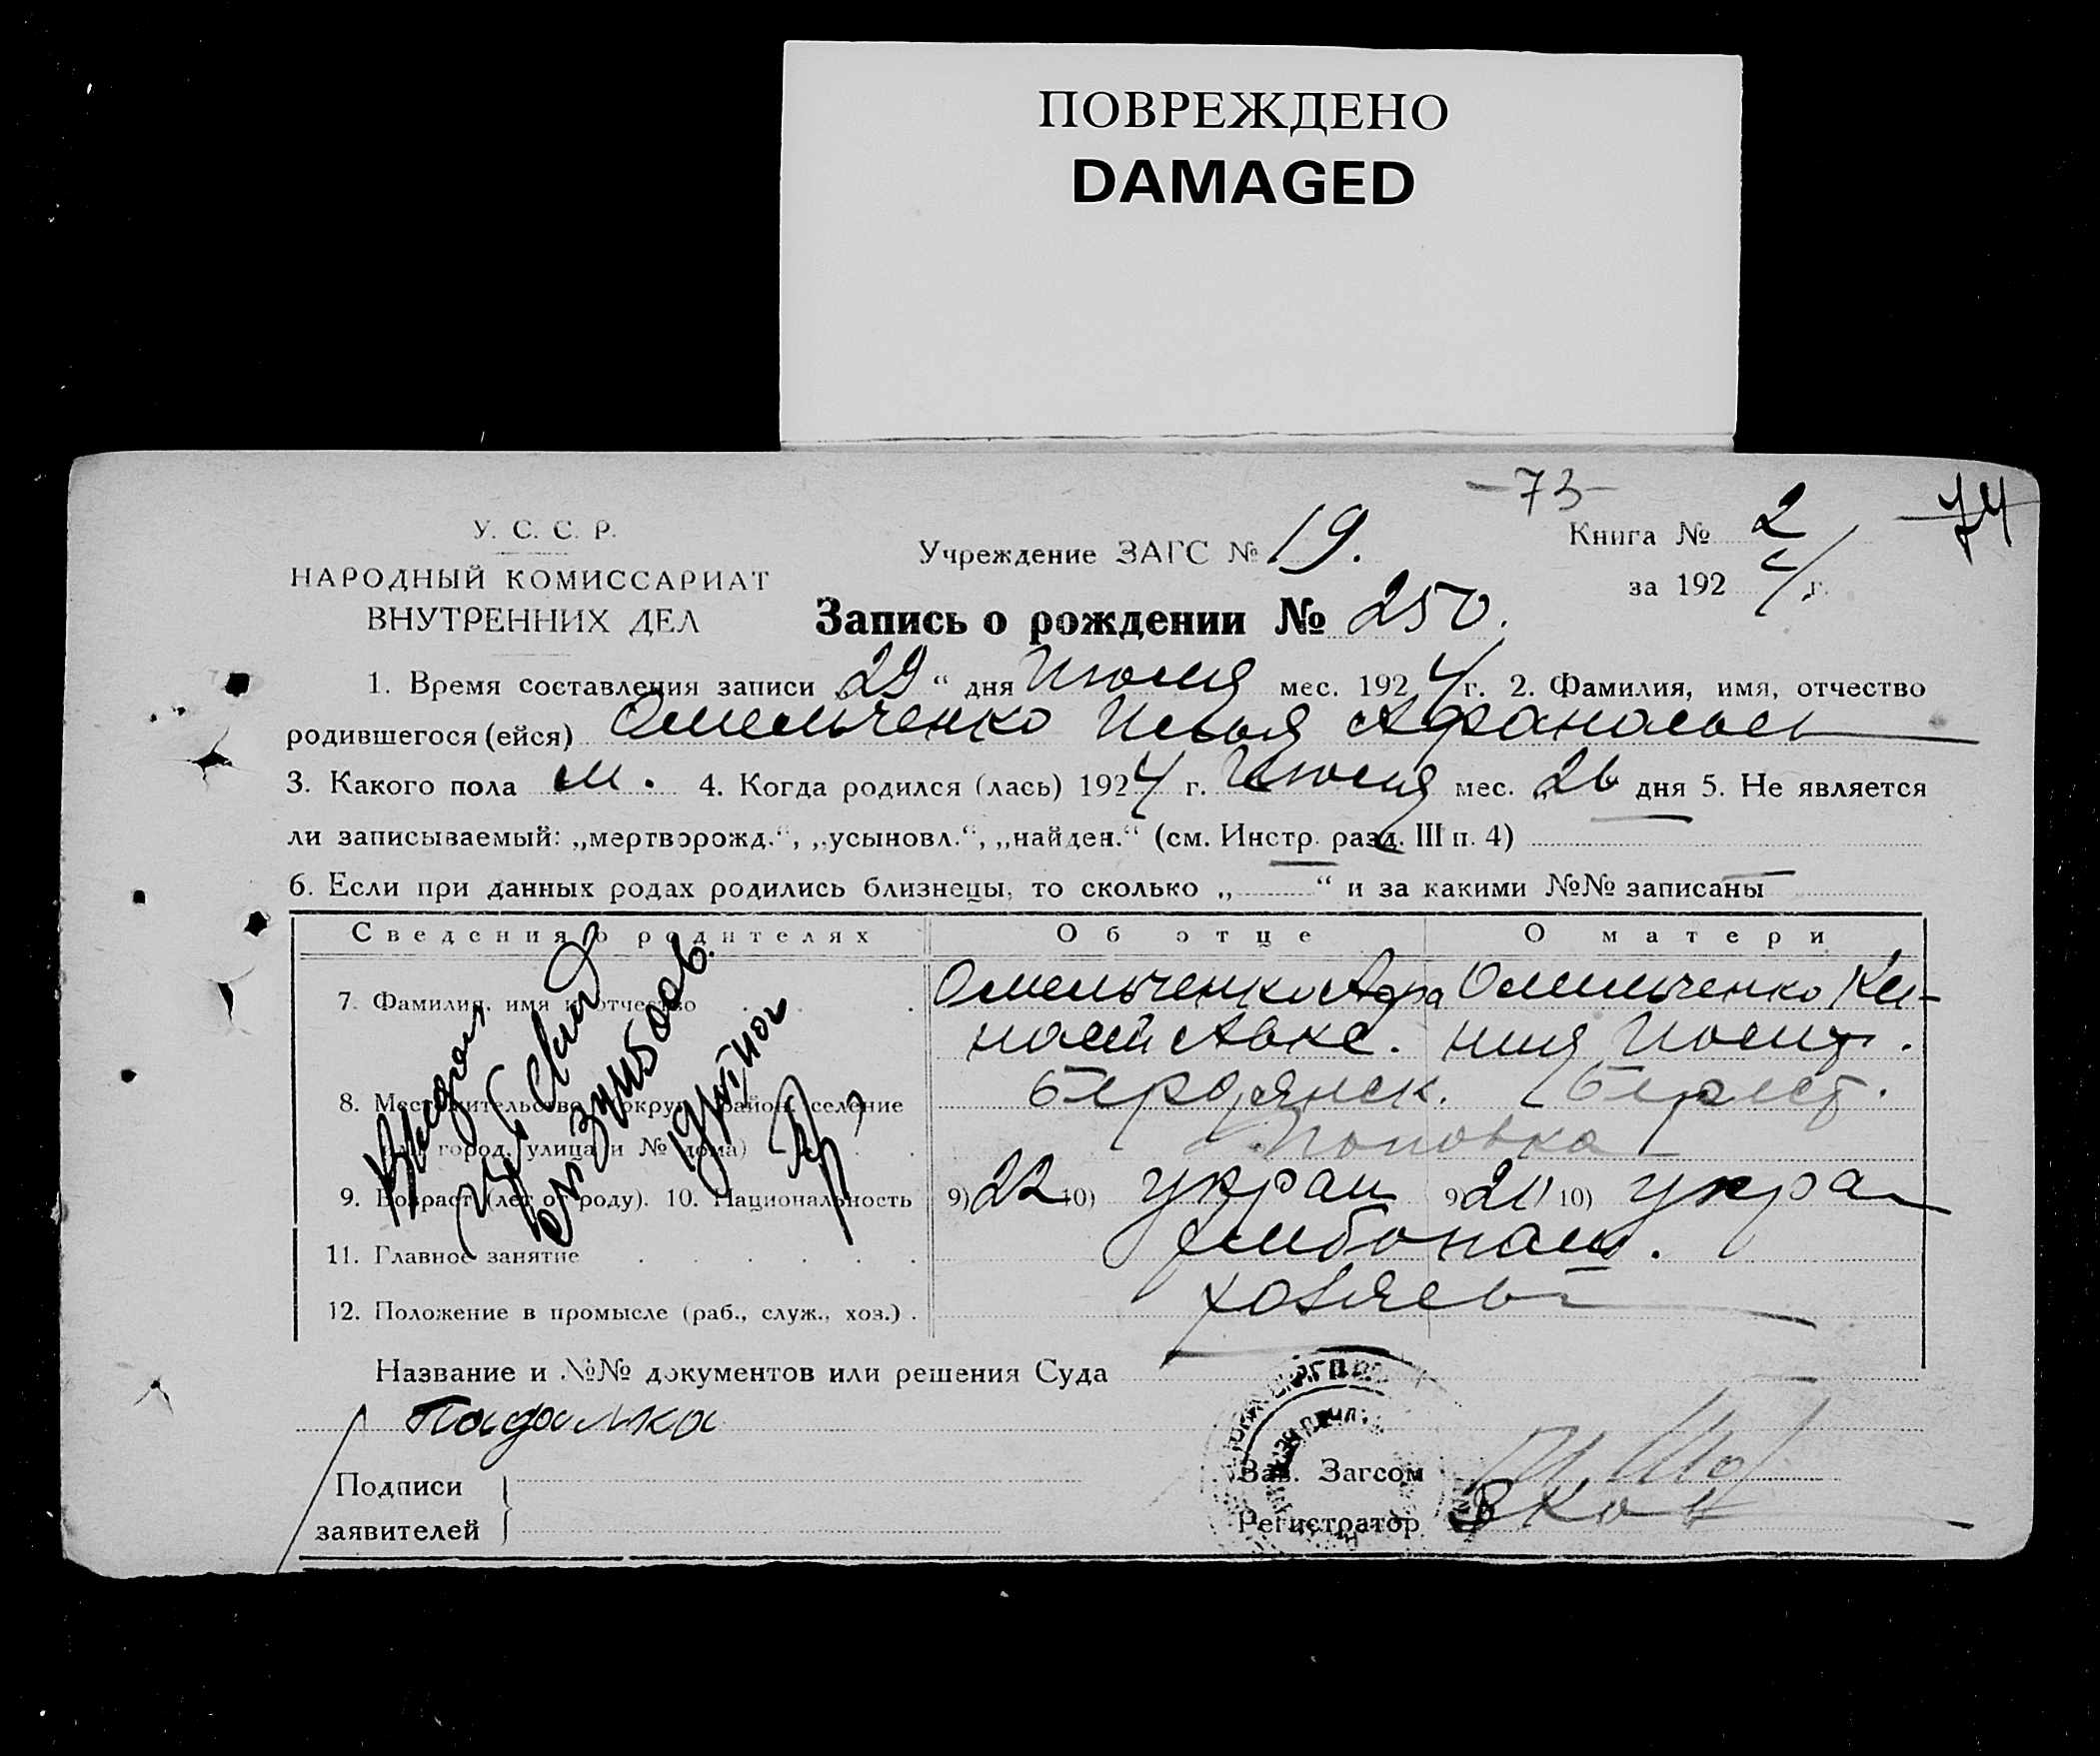 ПОВРЕЖДЕНО
DAMAGED
-73-
74
У. С. С. Р.
НАРОДНЫЙ КОМИССАРИАТ
ВНУТРЕННИХ ДЕЛ
Учреждение ЗАГС № 19.
Книга № 2
за 1924 г.
Запись о рождении № 250.
1. Время составления записи „29“ дня Июля мес. 1924 г. 2. Фамилия, имя, отчество
родившегося (ейся) Омельченко Илья Афанасьев
3. Какого пола м. 4. Когда родился (лась) 1924 г. Июля мес. „26 дня 5. Не является
ли записываемый: „мертворожд.“, „усыновл.“, „найден.“ (см. Инстр. разд. III п. 4)
6. Если при данных родах родились близнецы, то сколько „ “ и за какими №№ записаны
Сведения о родителях Об отце О матери
7. Фамилия, имя и отчество Омельченко Афа Омельченко Ки-
насий Авкс. ния
8. Местожительство округ, район, селение Бердянск. Берест.
город, улица и № дома) Поповка
9. Возраст (лет от роду). 10. Национальность 9) 22 10) украи 9) 21 10) укра
11. Главное занятие хлебопаш.
12. Положение в промысле (раб., служ., хоз.) хозяева
Название и №№ документов или решения Суда
Падалка
Подписи
заявителей
Зав. Загсом
Регистратор